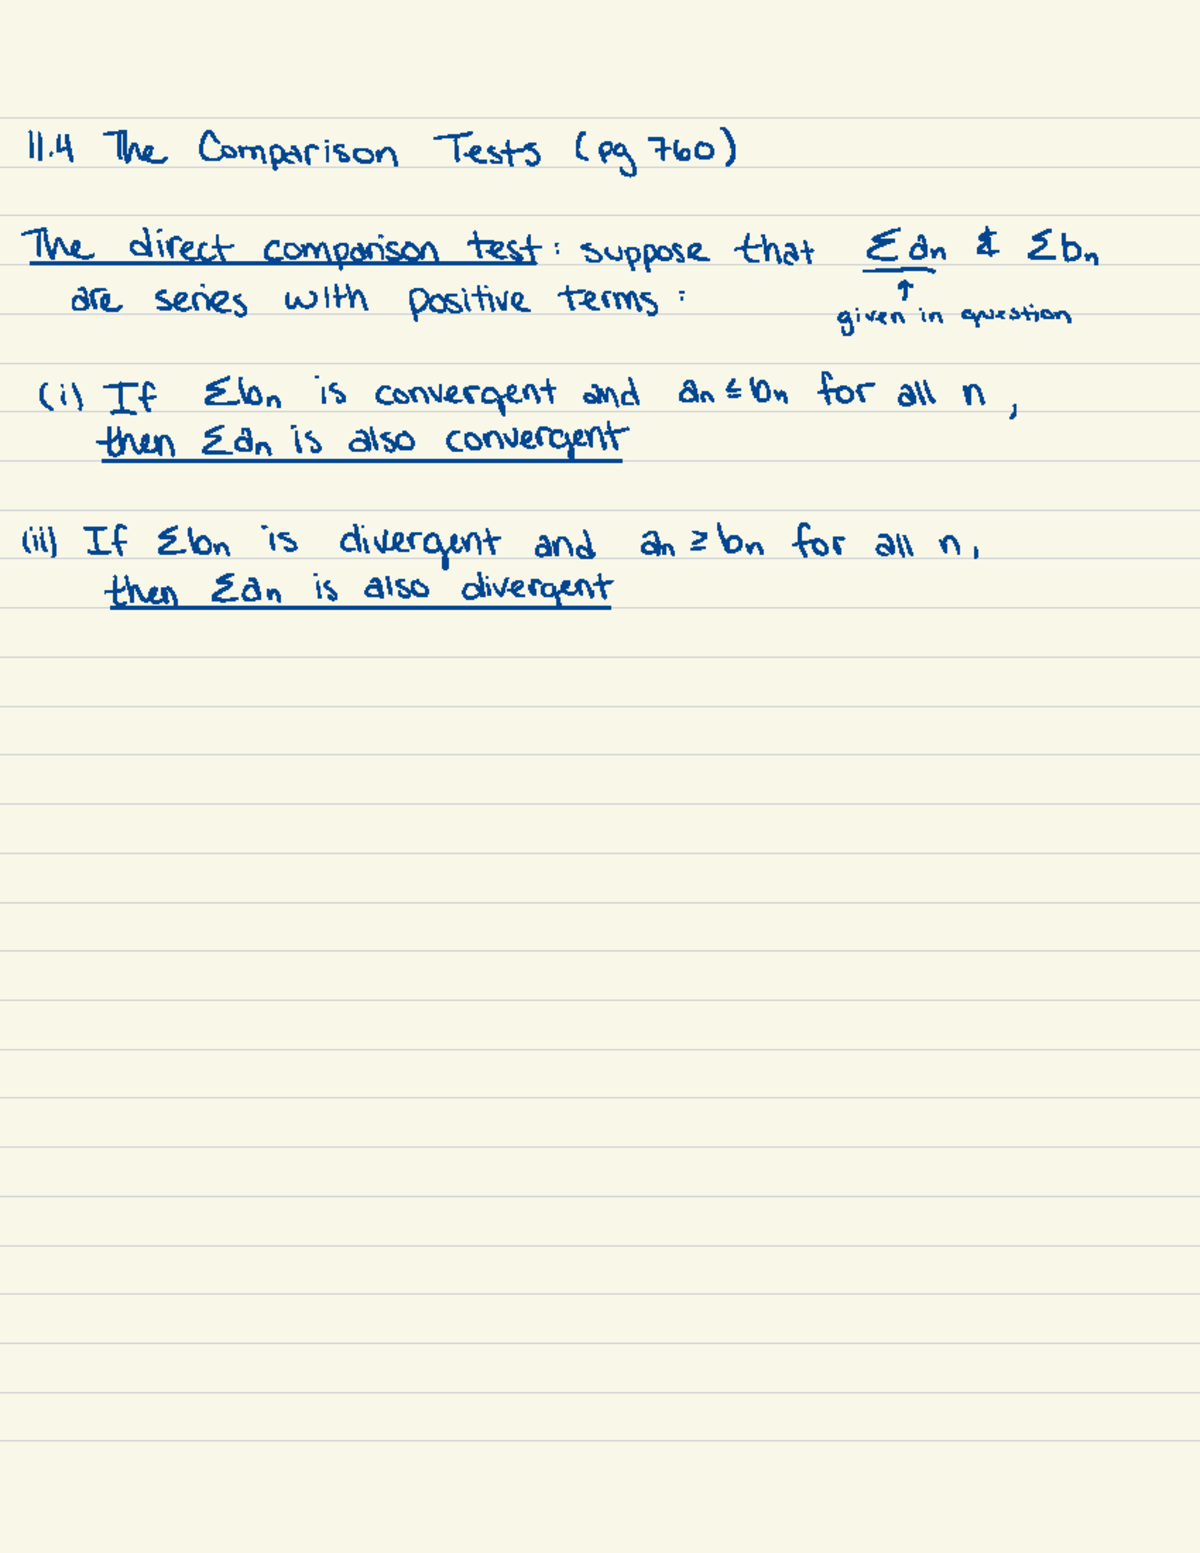 11.4 The Comparison Tests (pg 760)
The direct comparison test: suppose that Σan & Σbn
are series with positive terms:
↑
given in question
(i) If Σbn is convergent and an ≤ bn for all n,
then Σan is also convergent
(iii) If Σbn is divergent and an ≥ bn for all n,
then Σan is also divergent